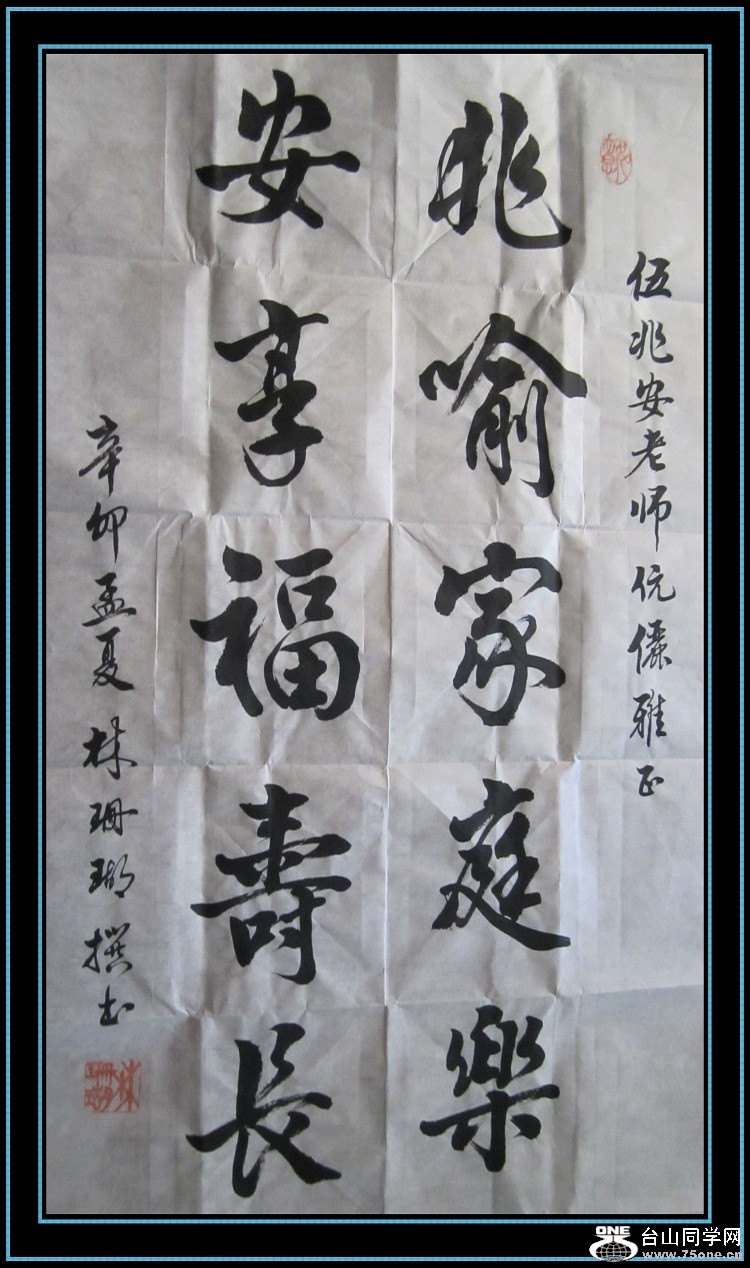 伍兆安老师伉俪雅正
兆喻家庭樂
安享福壽長
辛卯孟夏 林珊瑚撰书
林珊瑚
ONE
台山同学网
www.75one.cn